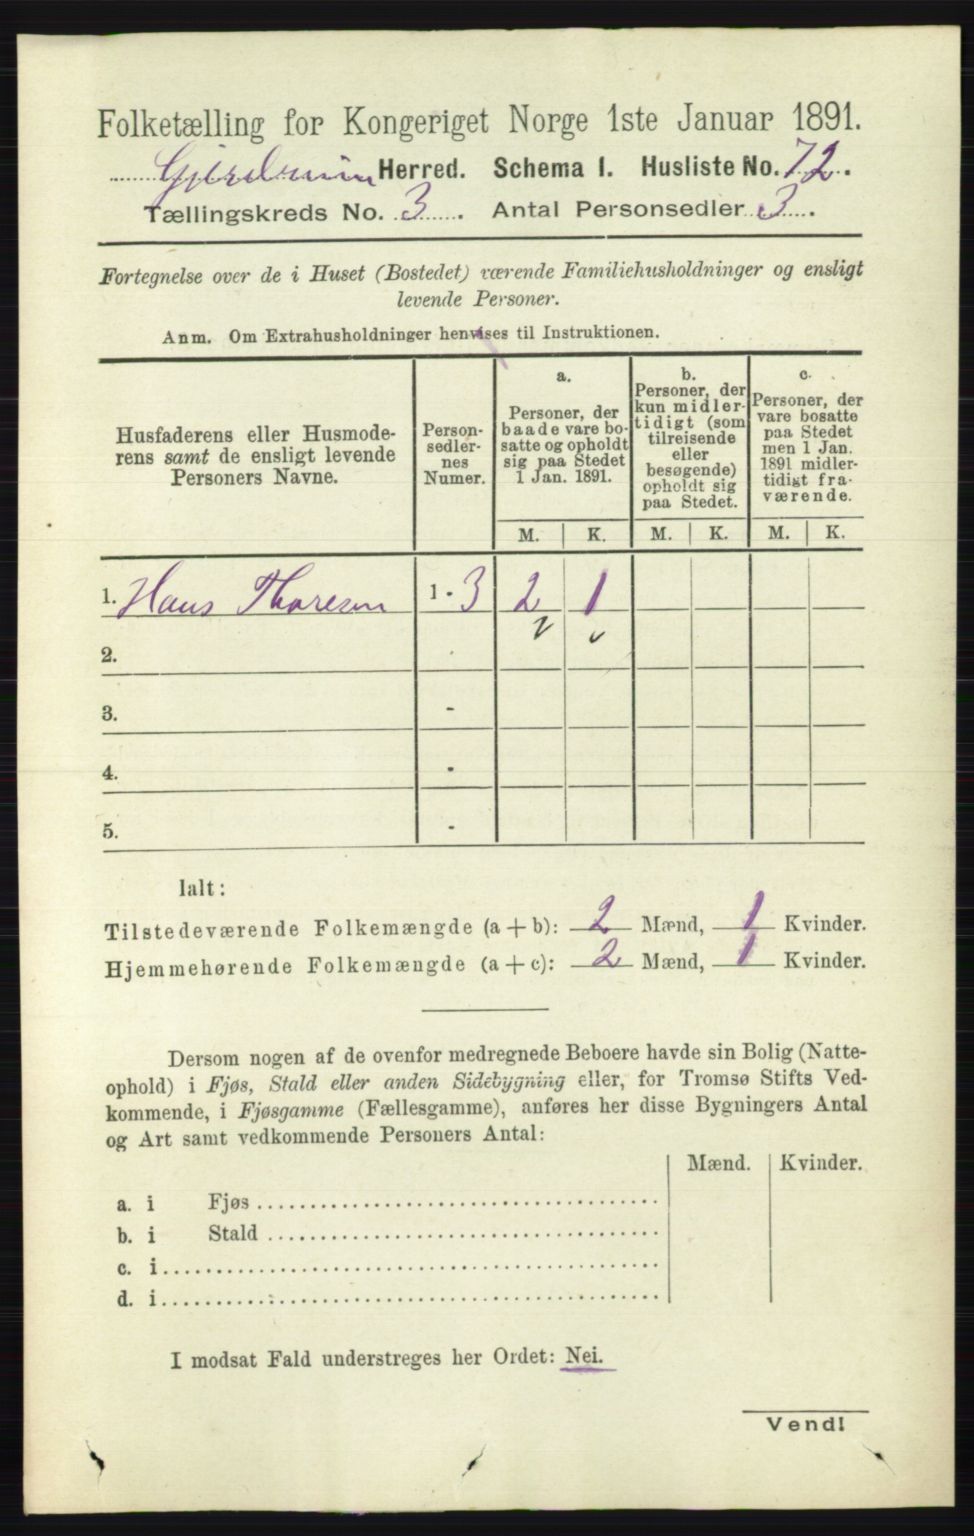 Folketælling for Kongeriget Norge 1ste Januar 1891.
Gjerdrum Herred. Schema I. Husliste No. 72.
Tællingskreds No. 3. Antal Personsedler 3.
Fortegnelse over de i Huset (Bostedet) værende Familiehusholdninger og ensligt
levende Personer.
Anm. Om Extrahusholdninger henvises til Instruktionen.
Husfaderens eller Husmode-
rens samt de ensligt levende
Personers Navne.
Person-
sedler-
nes
Numer.
a.
Personer, der
baade vare bo-
satte og opholdt
sig paa Stedet
1 Jan. 1891.
b.
Personer, der
kun midler-
tidigt (som
tilreisende
eller
besøgende)
opholdt sig
paa Stedet.
c.
Personer, der
vare bosatte
paa Stedet
men 1 Jan.
1891 midler-
tidigt fra-
værende.
M. K. M. K. M. K.
1. Hans Thoresen 1 - 3 2 1
2.
3. -
4. -
5. -
Ialt:
Tilstedeværende Folkemængde (a + b): 2 Mænd, 1 Kvinder.
Hjemmehørende Folkemængde (a + c): 2 Mænd, 1 Kvinder.
Dersom nogen af de ovenfor medregnede Beboere havde sin Bolig (Natte-
ophold) i Fjøs, Stald eller anden Sidebygning eller, for Tromsø Stifts Ved-
kommende, i Fjøsgamme (Fællesgamme), anføres her disse Bygningers Antal
og Art samt vedkommende Personers Antal:
Mænd. Kvinder.
a. i Fjøs
b. i Stald
c. i
d. i
I modsat Fald understreges her Ordet: Nei.
Vend!